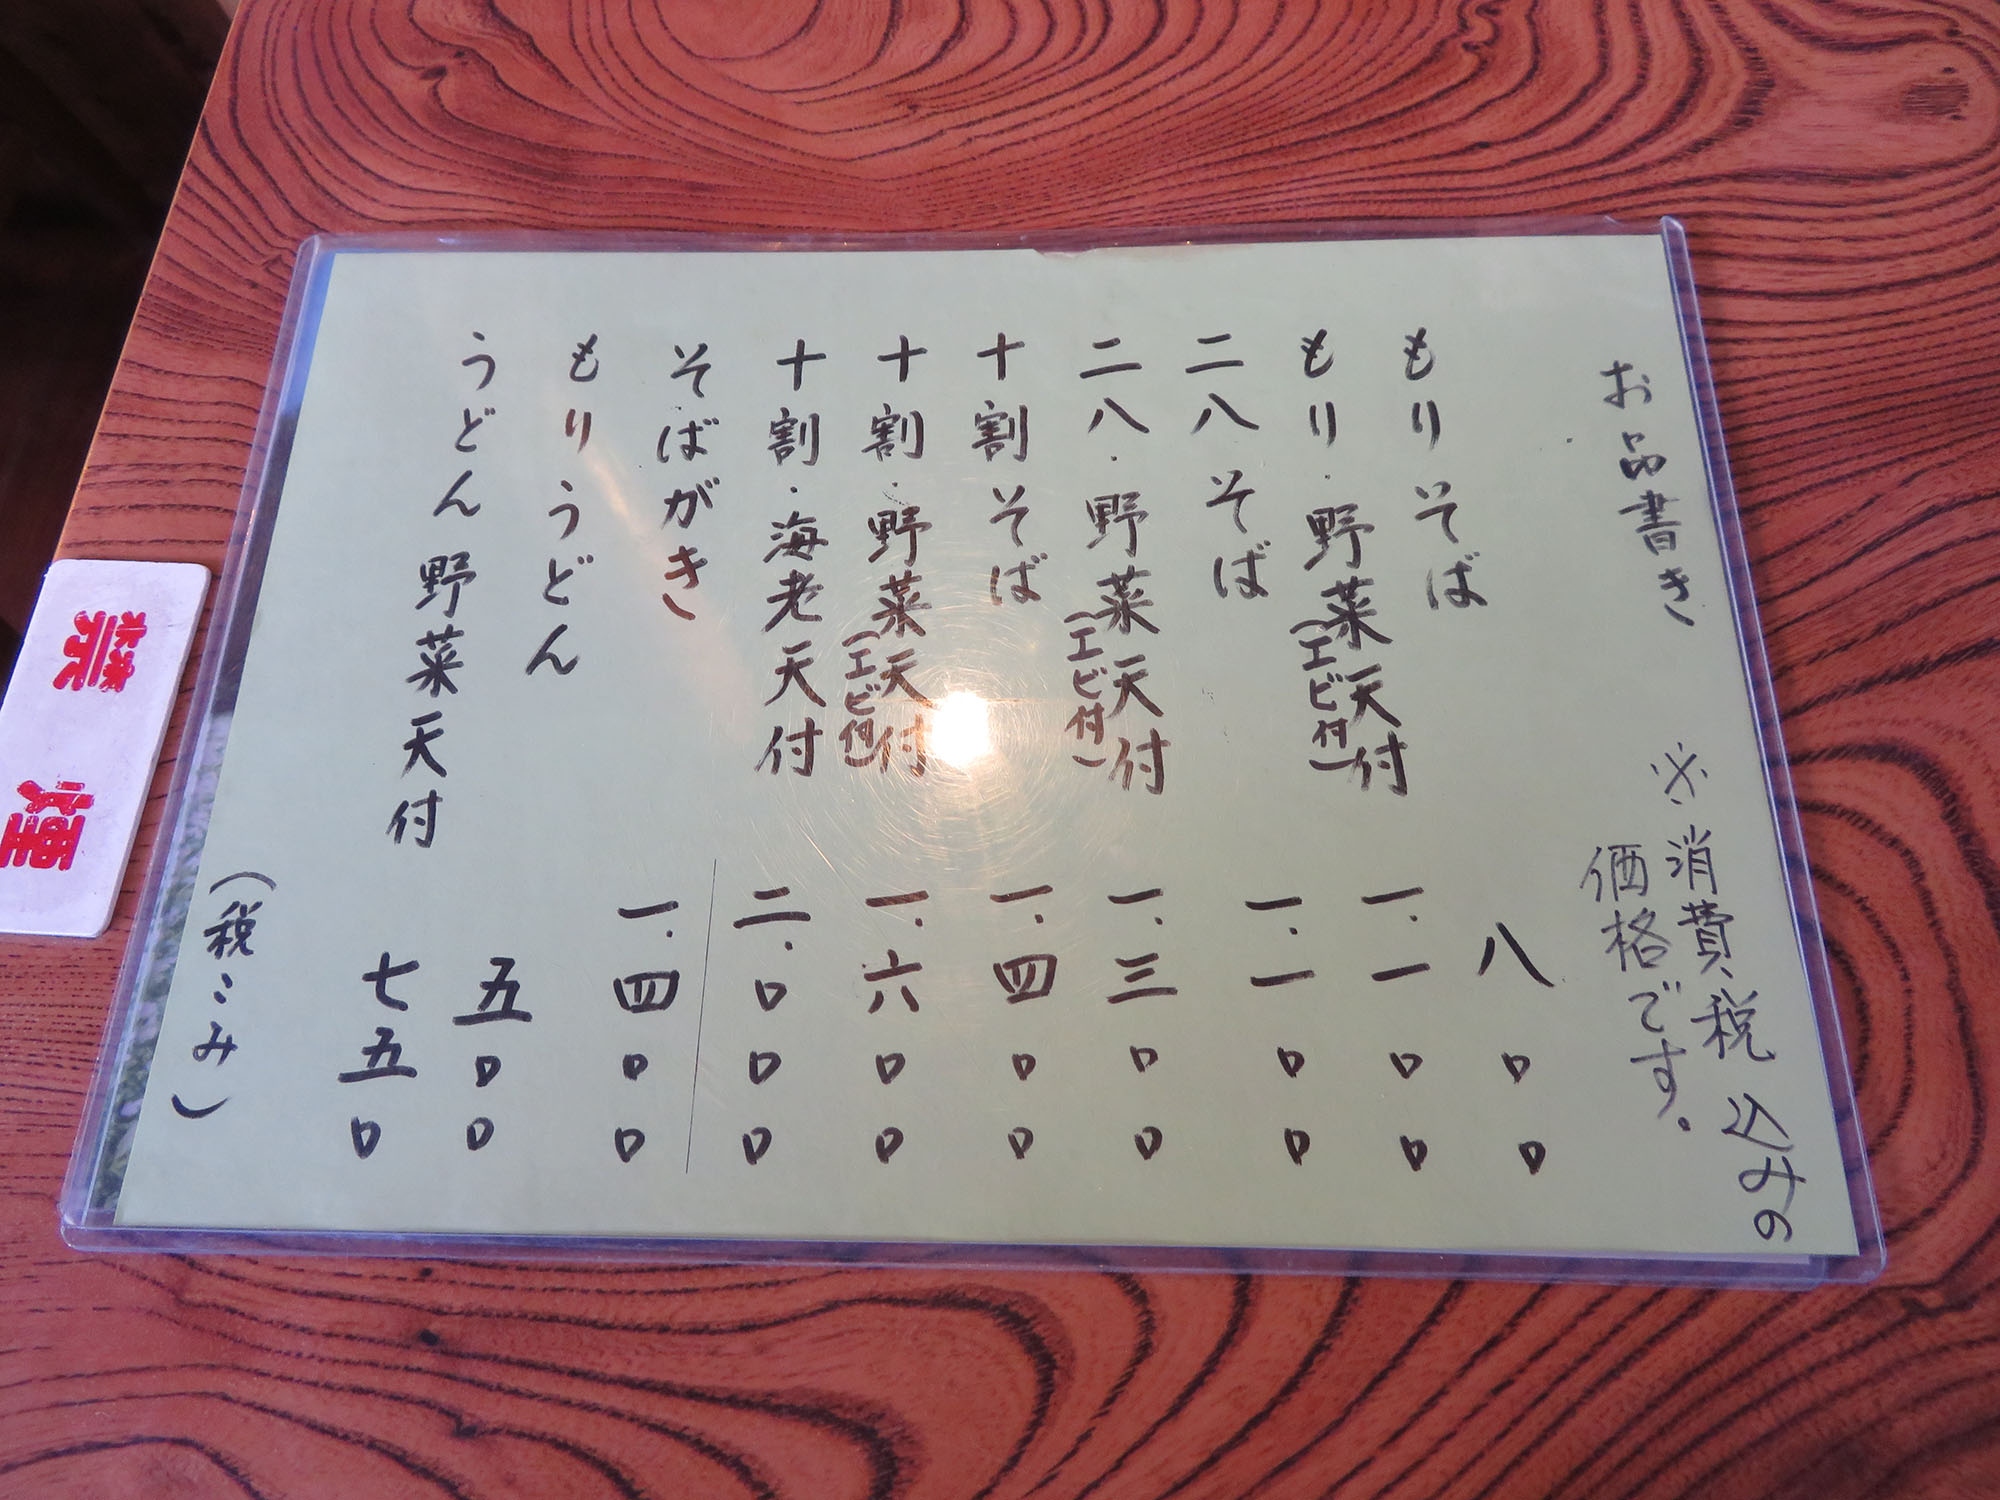 お品書き
※消費税込みの
価格です。
もりそば 八〇〇
もり・野菜天付 一.一〇〇
(エビ付)
二八そば 一.一〇〇
二八・野菜天付 一.三〇〇
(エビ付)
十割そば 一.四〇〇
十割・野菜天付 一.六〇〇
(エビ付)
十割・海老天付 二.〇〇〇
そばがき 一.四〇〇
もりうどん 五〇〇
うどん野菜天付 七五〇
(税こみ)
禁煙